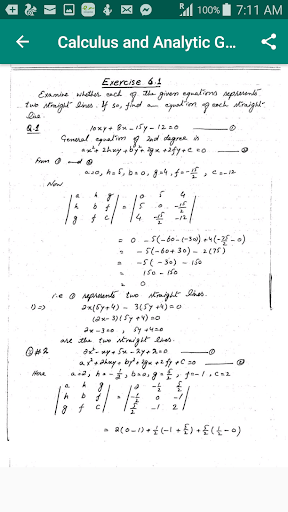 100% 7:11 AM
Calculus and Analytic G...
Exercise 6.1
Examine whether each of the given equations represents
two straight lines. If so, find an equation of each straight
line.
Q.1 10xy + 8x - 15y - 12 = 0 ——— ①
General equation of 2nd degree is
ax² + 2hxy + by² + 2gx + 2fy + c = 0 ——— ②
From ① and ②
a=0, h=5, b=0, g=4, f=-15/2, c=-12
Now
| a h g | | 0 5 4 |
| h b f | = | 5 0 -15/2 |
| g f c | | 4 -15/2 -12 |
= 0 - 5(-60-(-30)) + 4(-75/2 - 0)
= -5(-60+30) - 2(75)
= -5(-30) - 150
= 150 - 150
= 0
i.e ① represents two straight lines.
①⇒ 2x(5y+4) - 3(5y+4) = 0
(2x-3)(5y+4) = 0
2x-3=0, 5y+4=0
are the two straight lines.
Q#2 2x² - xy + 5x - 2y + 2 = 0 ——— ①
ax² + 2hxy + by² + 2gx + 2fy + c = 0 ——— ②
Here a=2, h=-1/2, b=0, g=5/2, f=-1, c=2
| a h g | | 2 -1/2 5/2 |
| h b f | = | -1/2 0 -1 |
| g f c | | 5/2 -1 2 |
= 2(0-1) + 1/2(-1+5/2) + 5/2(1/2-0)